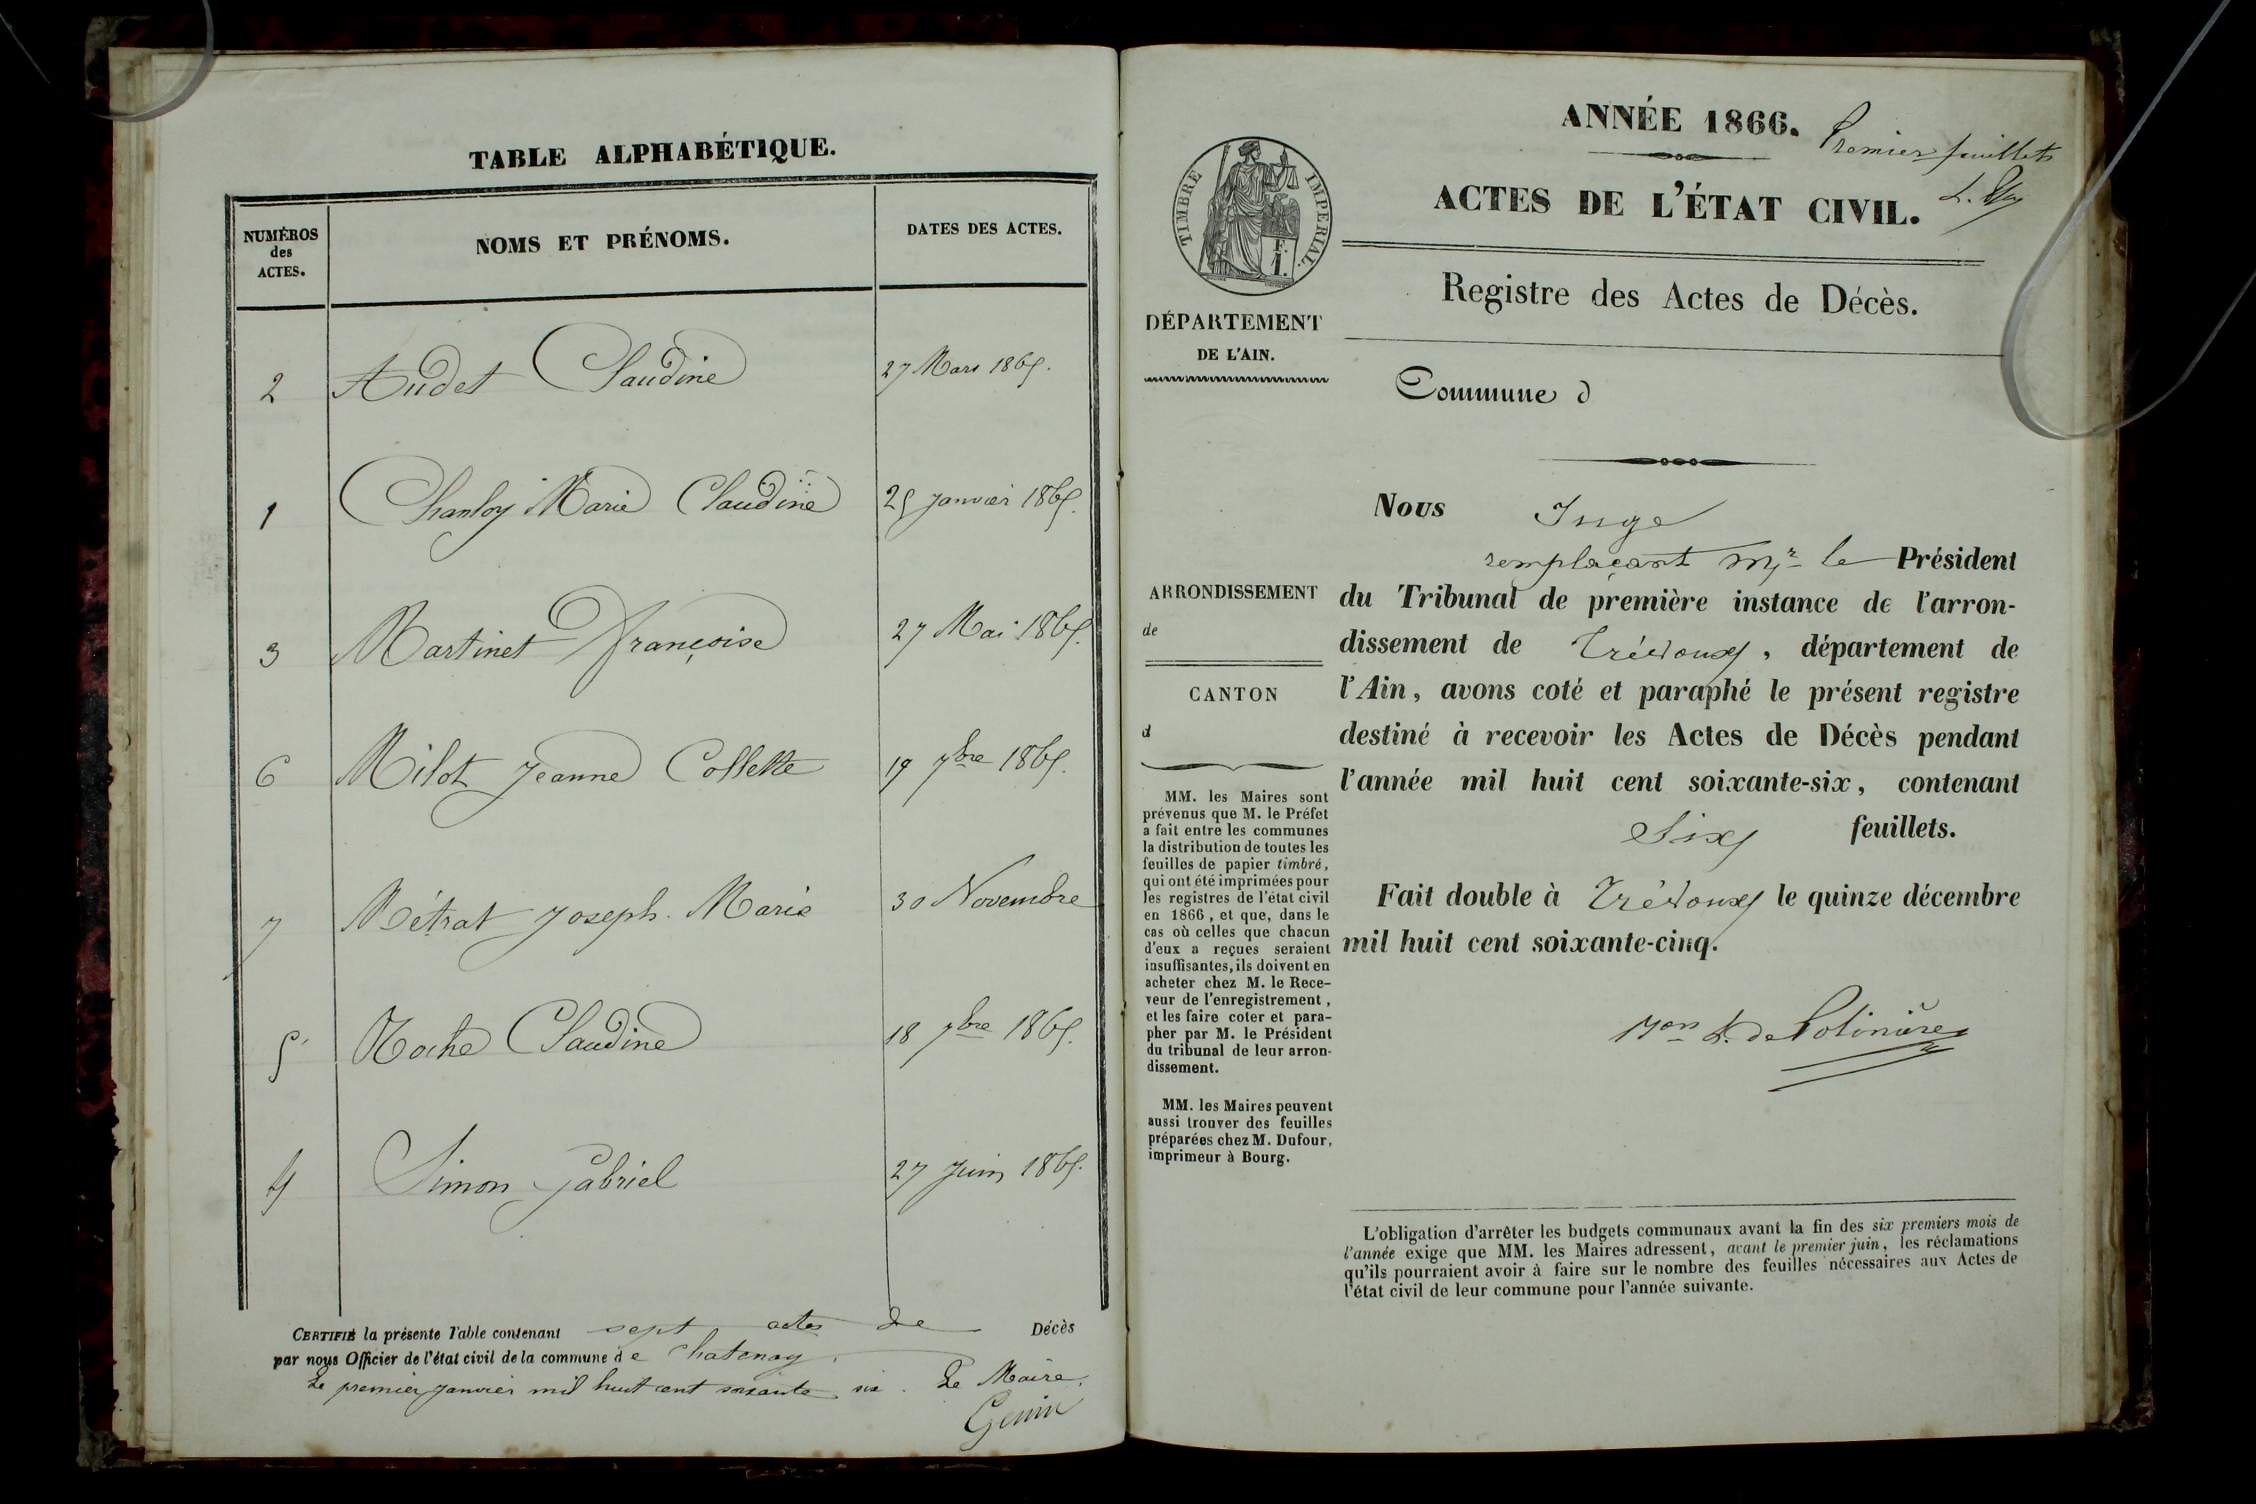 TABLE ALPHABÉTIQUE.
NUMÉROS
des
ACTES.
NOMS ET PRÉNOMS.
DATES DES ACTES.
2 Audet Claudine 27 Mars 1865.
1 Chanloy Marie Claudine 25 janvier 1865.
3 Martinet françoise 27 Mai 1865.
6 Milot jeanne Collette 19 7bre 1865.
7 Métrat joseph Marie 30 Novembre
5 Roche Claudine 18 7bre 1865.
4 Simon gabriel 27 juin 1865.
CERTIFIÉ la présente Table contenant sept actes de Décès
par nous Officier de l'état civil de la commune de Chatenay.
Le premier janvier mil huit cent soixante six. Le Maire.
Genin
ANNÉE 1866.
Premier feuillet
ACTES DE L'ÉTAT CIVIL.
TIMBRE IMPERIAL.
Registre des Actes de Décès.
DÉPARTEMENT
DE L'AIN.
Commune d
ARRONDISSEMENT
de
CANTON
d
MM. les Maires sont
prévenus que M. le Préfet
a fait entre les communes
la distribution de toutes les
feuilles de papier timbré,
qui ont été imprimées pour
les registres de l'état civil
en 1866, et que, dans le
cas où celles que chacun
d'eux a reçues seraient
insuffisantes, ils doivent en
acheter chez M. le Rece-
veur de l'enregistrement,
et les faire coter et para-
pher par M. le Président
du tribunal de leur arron-
dissement.
MM. les Maires peuvent
aussi trouver des feuilles
préparées chez M. Dufour,
imprimeur à Bourg.
Nous Juge
remplaçant Mr le Président
du Tribunal de première instance de l'arron-
dissement de Trévoux, département de
l'Ain, avons coté et paraphé le présent registre
destiné à recevoir les Actes de Décès pendant
l'année mil huit cent soixante-six, contenant
Six feuillets.
Fait double à Trévoux le quinze décembre
mil huit cent soixante-cinq.
de Polinière
L'obligation d'arrêter les budgets communaux avant la fin des six premiers mois de
l'année exige que MM. les Maires adressent, avant le premier juin, les réclamations
qu'ils pourraient avoir à faire sur le nombre des feuilles nécessaires aux Actes de
l'état civil de leur commune pour l'année suivante.